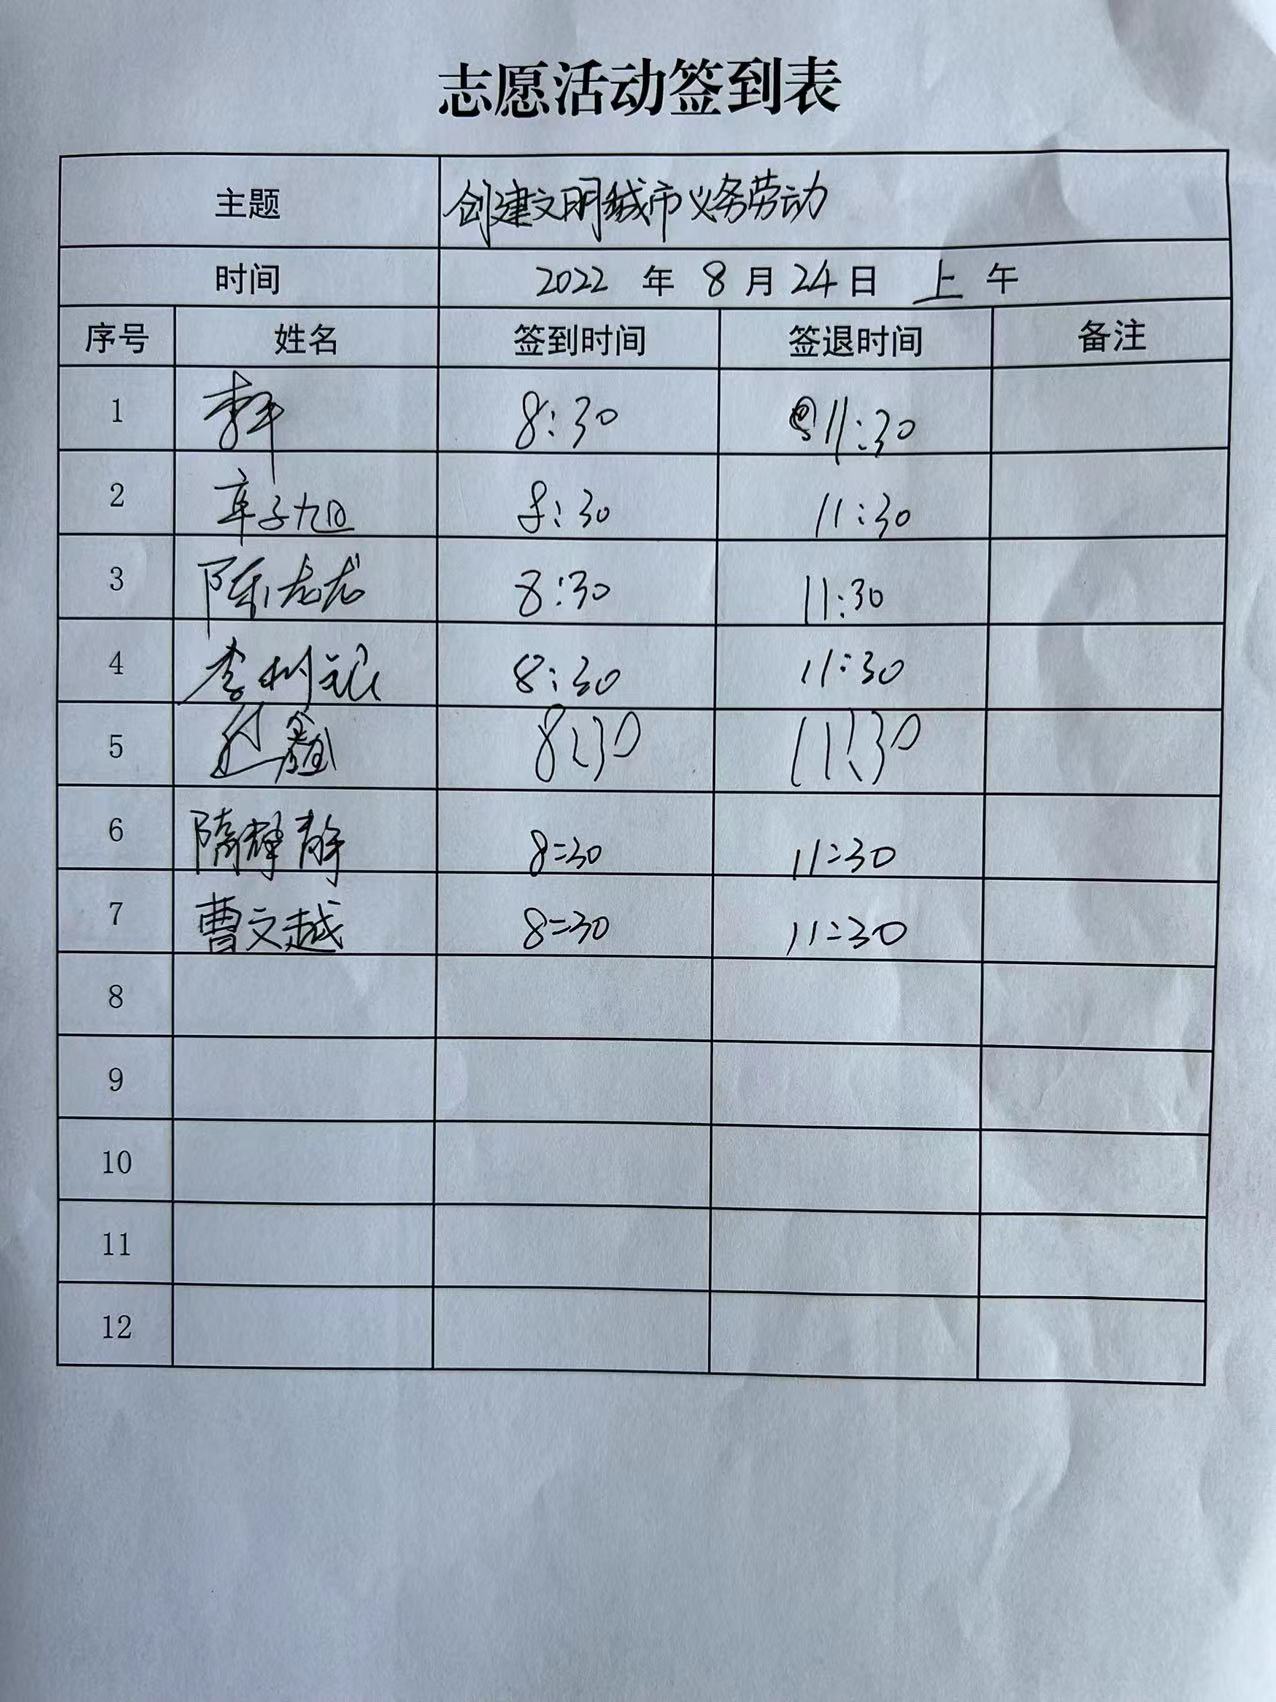 志愿活动签到表
主题 创建文明城市义务劳动
时间 2022 年 8 月 24 日 上 午
序号 姓名 签到时间 签退时间 备注
1 8:30 11:30
2 辛子旭 8:30 11:30
3 陈龙龙 8:30 11:30
4 李 8:30 11:30
5 赵鑫 8:30 11:30
6 隋静 8:30 11:30
7 曹文越 8:30 11:30
8
9
10
11
12